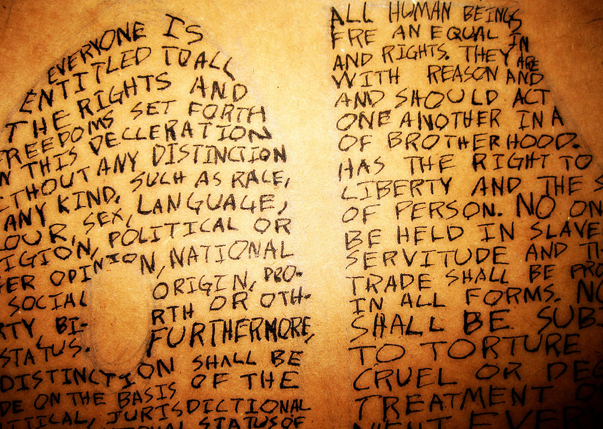 EVERYONE IS
ENTITLED TO ALL
THE RIGHTS AND
FREEDOMS SET FORTH
IN THIS DECLERATION
WITHOUT ANY DISTINCTION
ANY KIND, SUCH AS RACE,
OUR, SEX, LANGUAGE,
IGION, POLITICAL OR
ER OPINION, NATIONAL
SOCIAL ORIGIN, PRO-
RTY BI- RTH OR OTH-
STATUS. FURTHERMORE,
DISTINCTION SHALL BE
DE ON THE BASIS OF THE
ITICAL, JURISDICTIONAL
STATUS OF
ALL HUMAN BEINGS
FRE AN EQUAL IN
AND RIGHTS. THEY ARE
WITH REASON AND
AND SHOULD ACT
ONE ANOTHER IN A
OF BROTHERHOOD.
HAS THE RIGHT TO
LIBERTY AND THE S
OF PERSON. NO ON
BE HELD IN SLAVE
SERVITUDE AND TH
TRADE SHALL BE PRO
IN ALL FORMS. NO
SHALL BE SUBJ
TO TORTURE
CRUEL OR DEG
TREATMENT O